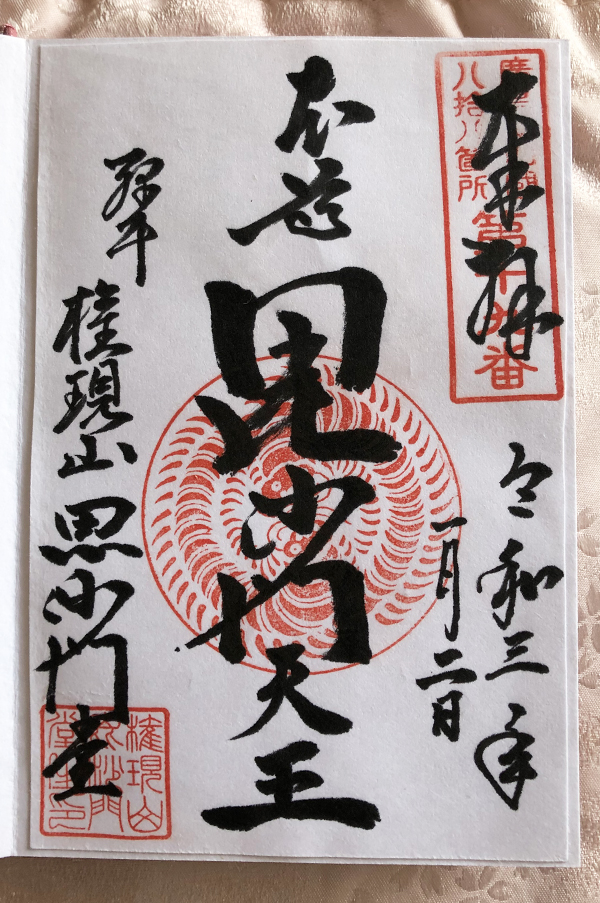 奉拝
八拾八箇所
令和三年
一月二日
本尊
毘沙門天王
権現山毘沙門堂
權現山
毘沙門